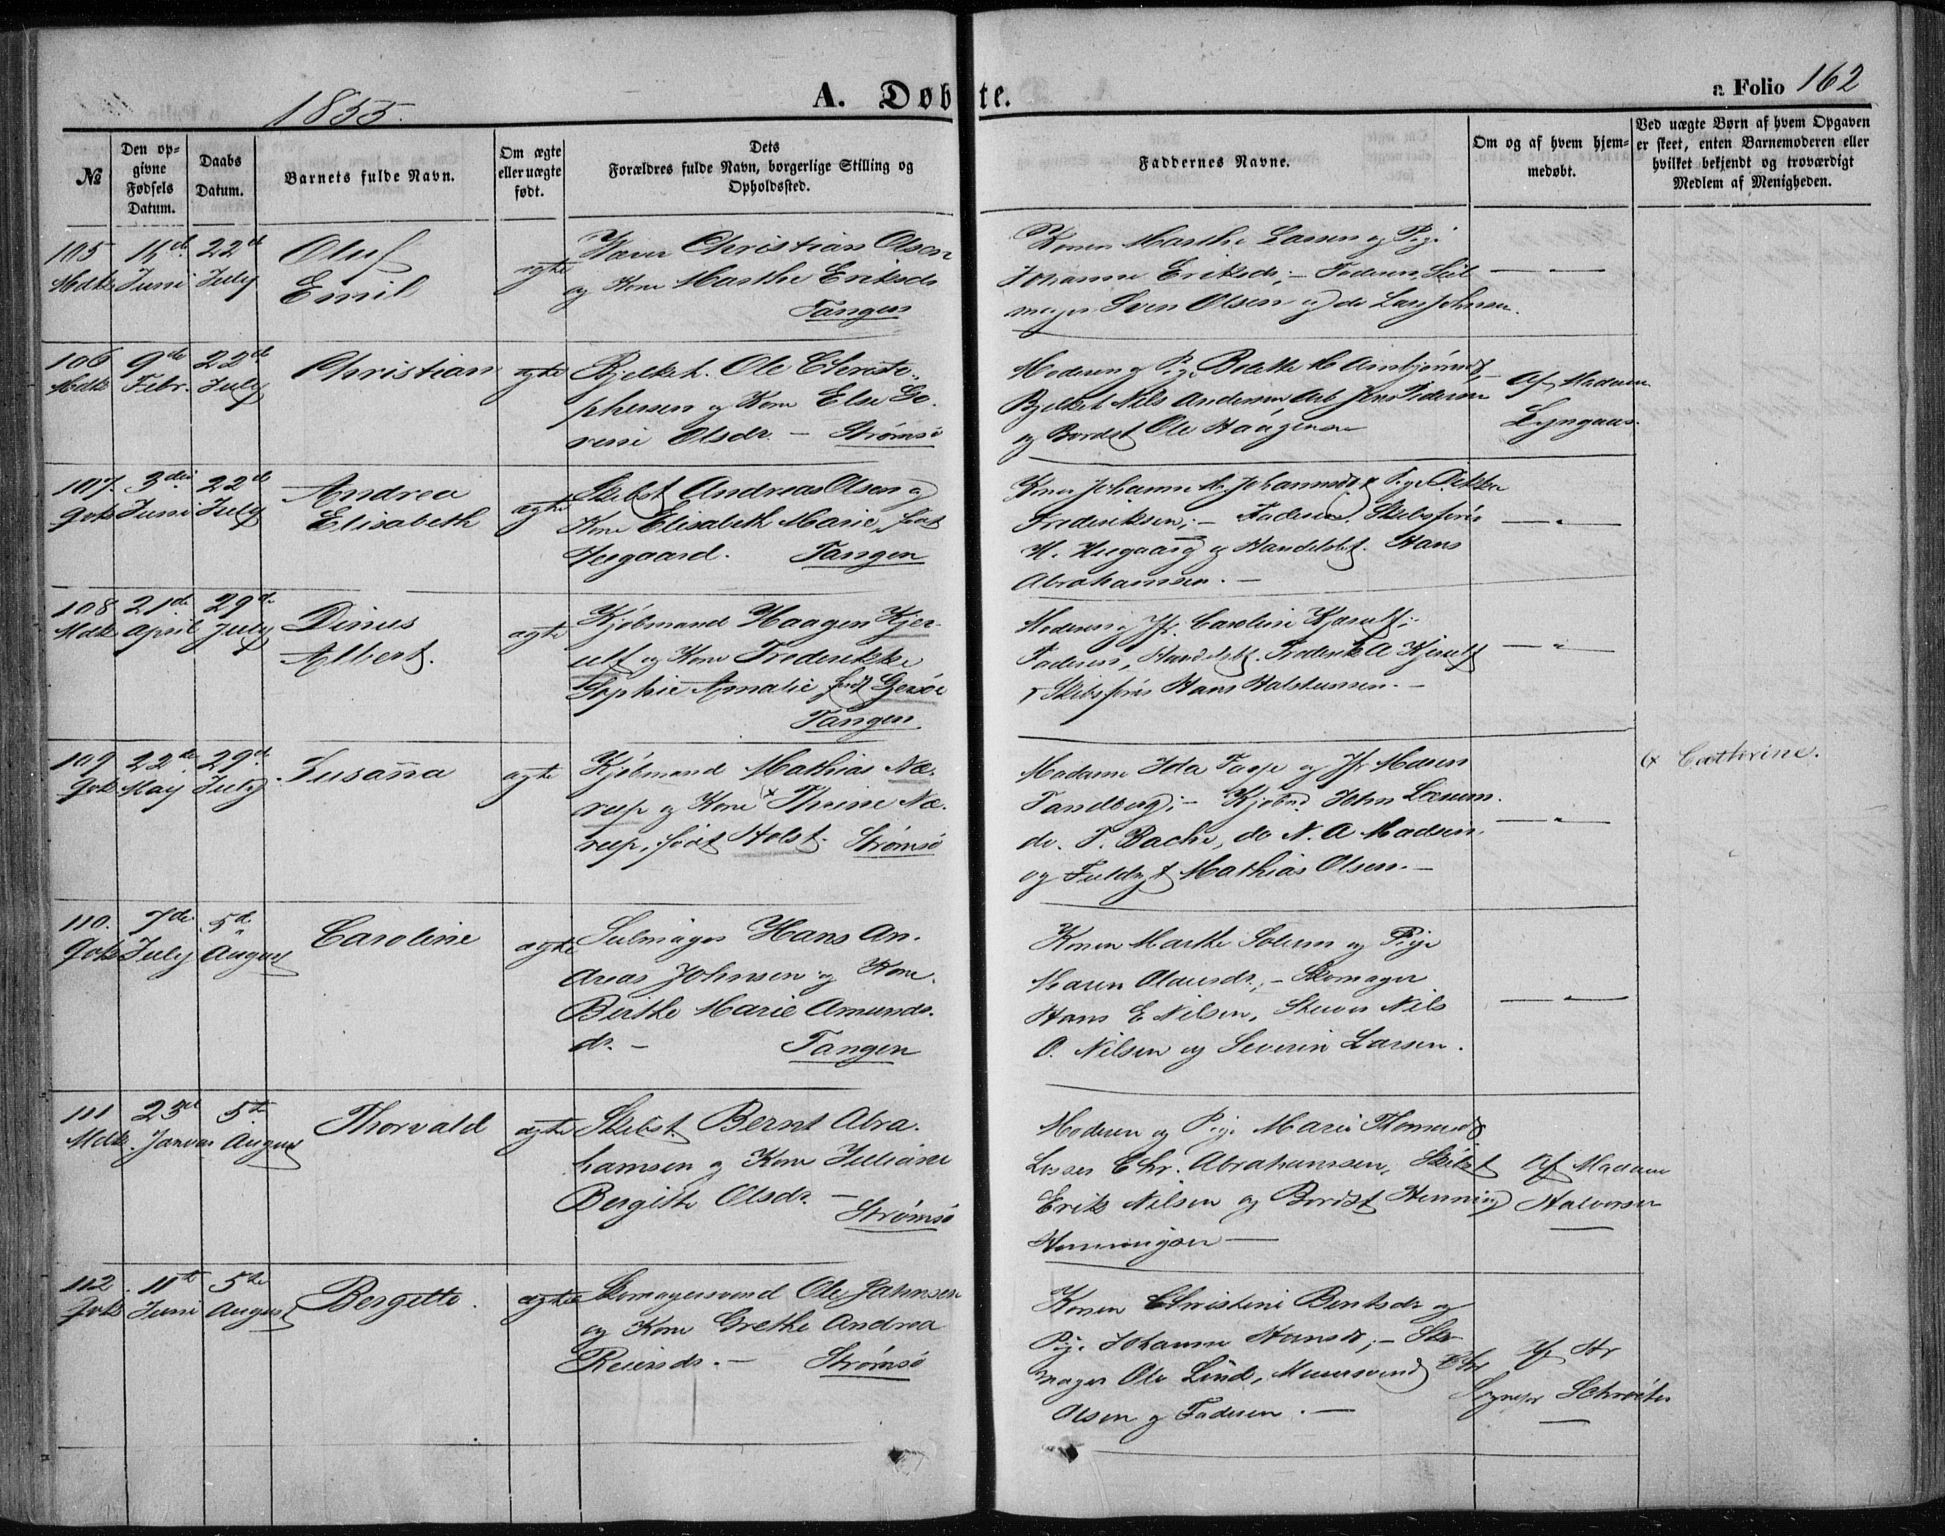 1855.
A. Døbte.
a Folio 162
№
Den op-
givne
Fødsels
Datum.
Daabs
Datum.
Barnets fulde Navn.
Om ægte
eller uægte
født.
Dets
Forældres fulde Navn, borgerlige Stilling og
Opholdssted.
Faddernes Navne.
Om og af hvem hjem-
medøbt.
Ved uægte Børn af hvem Opgaven
er skeet, enten Barnemoderen eller
hvilket bekjendt og troværdigt
Medlem af Menigheden.
105
Juni
22de
July
Oluf
Emil
ægte
Christian Olsen
og Kone Marthe Eriksdr
Tangen
Konen Marthe Larsen og Pige
Johanne Eriksdr; – Faderen, Seil
mager Sven Olsen og do Lars Johnsen.
106
Mdk
9de
Febr.
22de
July
Christian
ægte
Bjelkeh. Ole Christo-
phersen og Kone Else Go-
rine Olsdr. – Strømsø
Moderen og Pige Bolette M
Bjelkeh Nils Andersen, Arb Jens Pedersen
og Bordst Ole Haagensen
Af Madam
Lyngaas.
107.
Gok
3die
Juni
22de
July
Andrea
Elisabeth
ægte
Skibst Andreas Olsen og
Kone Elisabeth Marie, født
Tangen
Konen Johanne M. Johannesdr & Pige
Frederiksen; – Faderen, Skibsfører
H. og Handelsbt. Hans
Abrahamsen. –
108
Mdk
21de
April
29de
July
Dines
Albert.
ægte
Kjøbmand Haagen Kjer-
ulf og Kone Frederikke
Sophie Amalie født
Tangen
Moderen og Jfr. Caroline Kjerulf;
Faderen, Handelsbt. Frederik A Kjerulf
& Skibsfører Hans Halstensen. –
109
Gok
22de
Maij
29de
July
Susaña
ægte
Kjøbmand Mathias Næ-
rup og Kone x Thrine Næ-
rup, født Holst. Strømsø
Madame Ida Faye og Jfr Maren
Tandberg; – Kjøbmd. John
do. T. Bache, do N. A Madsen
og Mathias Olsen. –
x Cathrine.
110.
Gok
7de
July
5de
August
Caroline
ægte
Seilmager Hans An-
dreas Johnsen og Kone
Birthe Marie Amunds-
dr. – Tangen
Konen Marthe Solum og Pige
Maren Olausdr, – Skomager
Hans E Nilsen, Nils
O. Nilsen og Severin Larsen.
111
Mdk.
23de
Januar
5te
August
Thorvald
ægte
Skibst. Bernt Abra-
hamsen og Kone Juliane
Bergitte Olsdr. –
Strømsø
Moderen og Pige Marie Thomesdr
Losser Chr. Abrahamsen, Skibst
Erik Nilsen og Bordst Henning
Henningsen –
Af Madam
Halvorsen
112
Gok
11te
Juni
5te
August
Bergette.
ægte
Skomagersvend Ole Jahnsen
og Kone Grethe Andrea
Reiersdr. – Strømsø
Konen Christine Berntsdr og
Pige Johanne Hansdr; – Sko-
mager Ole Lind, Muursvend Chr
Olsen og Faderen. –
Af Hr
Sognepr Schrøeter